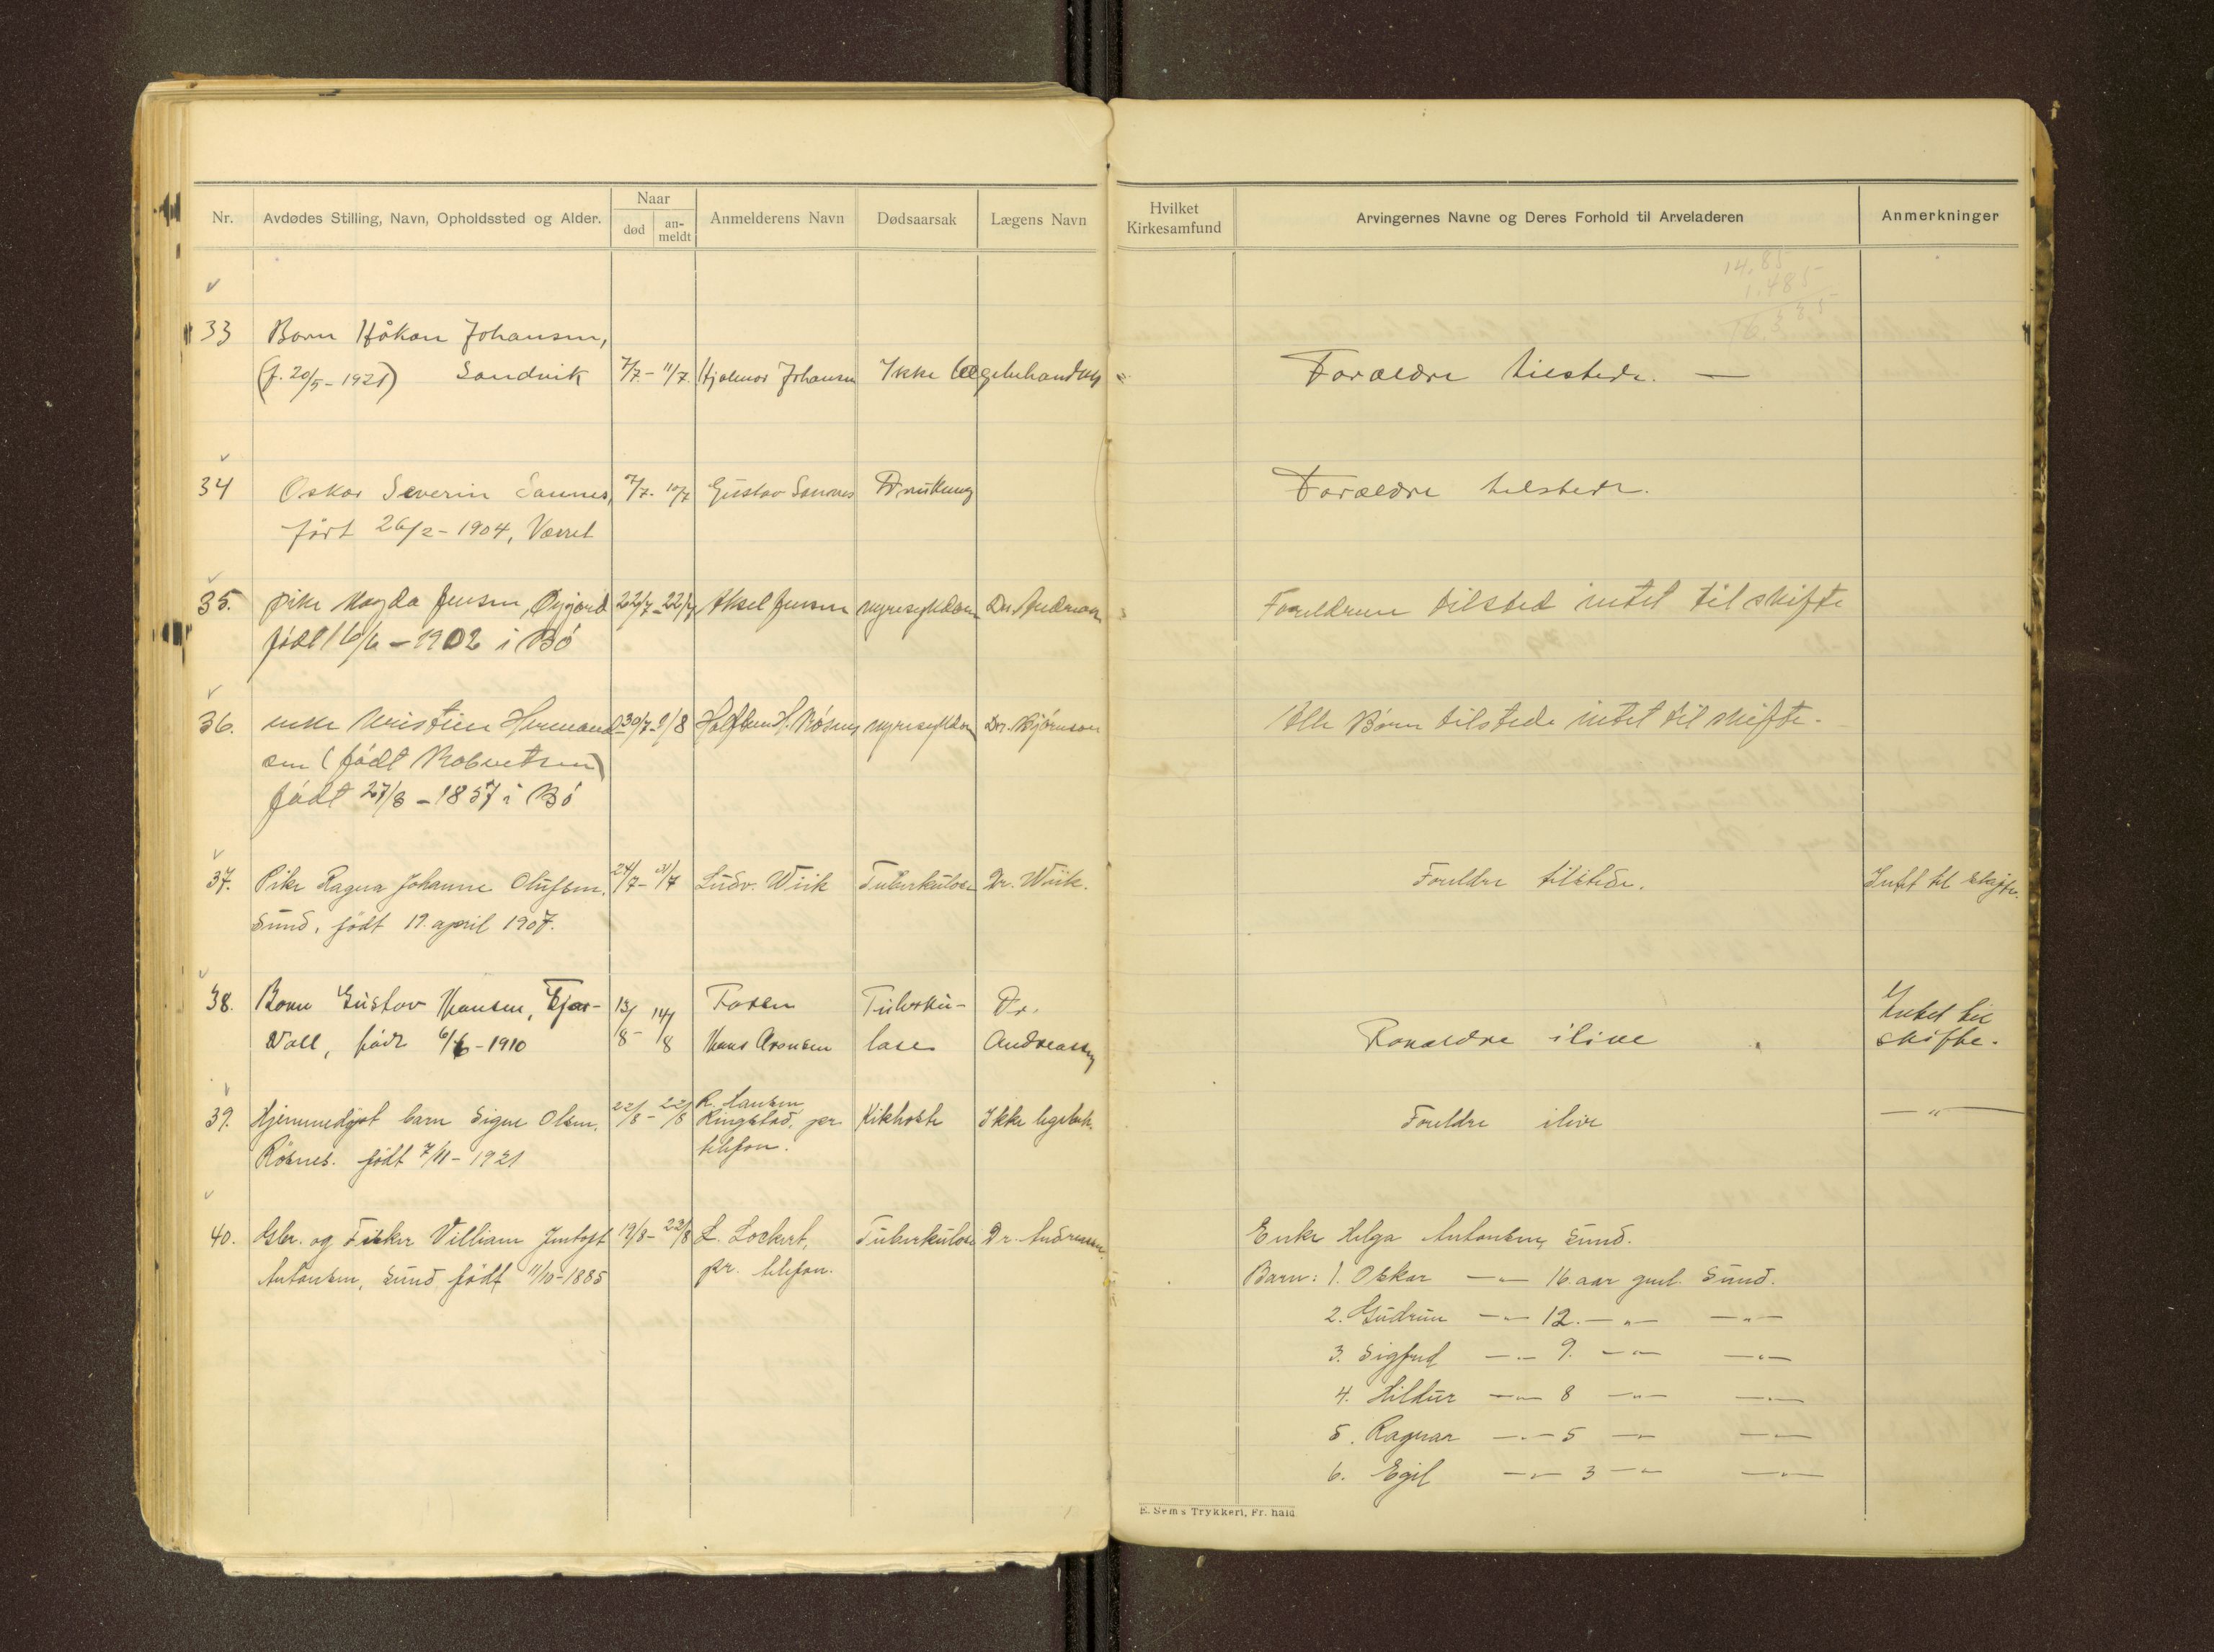 Nr. Avdødes Stilling, Navn, Opholdssted og Alder. Naar død an-meldt Anmelderens Navn Dødsaarsak Lægens Navn Hvilket Kirkesamfund Arvingernes Navne og Deres Forhold til Arveladeren Anmerkninger
14.85
1.485
33 Barn Håkon Johansen,
(f. 20/5 - 1921) Sandvik 7/7 - 11/7 Hjalmar Johansen Ikke lægebehandlet Forældre tilstede. —
34 Oskar Severin Sannes, 7/7 - 10/7 Gustav Sannes Drukning Forældre tilstede.
født 26/2 - 1904, Værret
35. pike Magda Jensen, Øygard 22/7 - 22/7 Aksel Jensen nyresykdom Dr. Andreasen Foreldrene tilsted intet til skifte
født 16/6 - 1902 i Bö
36. enke Kristine Hermand- 30/7 - 9/8 Halfdan H. nyresykdom Dr. Bjørnson Alle Børn tilstede intet til skifte -
sen (født Robertsen)
født 27/8 - 1857 i Bö
37. Pike Ragna Johanne Olufsen, 24/7 - 31/7 Ludv. Wiik Tuberkulose Dr. Wiik. Foreldre tilstede. Intet til skifte.
Sund, født 19. april 1907.
38. Barn Gustav Hansen, 13/8 - 14/8 Faren Tuberku- Dr. Intet til
Voll, født 6/6 - 1910 Hans Aronsen lose Andreassen Forældre ilive skifte.
39. Hjemmedøpt barn Signe Olsen, 22/8 - 22/8 R. Hansen Ringstad, per telefon. Kikhoste Ikke legebeh. Foreldre ilive — " —
Røsnes. født 7/11 - 1921
40. Gbr. og Fisker Villiam Jentoft 19/8 - 23/8 L. Lockert, Tuberkulose Dr. Andreassen. Enke Helga Antonsen, Sund.
Antonsen, Sund født 11/10 - 1885 pr. telefon. Barn: 1. Oskar — " — 16 aar gml. Sund.
2. Gudrun — " — 12. — " — — " —
3. Sigfred — " — 9. — " — — " —
4. Hildur — " — 8 — " — — " —
5. Ragnar — " — 5 — " — — " —
6. Egil — " — 3 — " — — " —
E. Sem's Trykkeri, Fr. hald